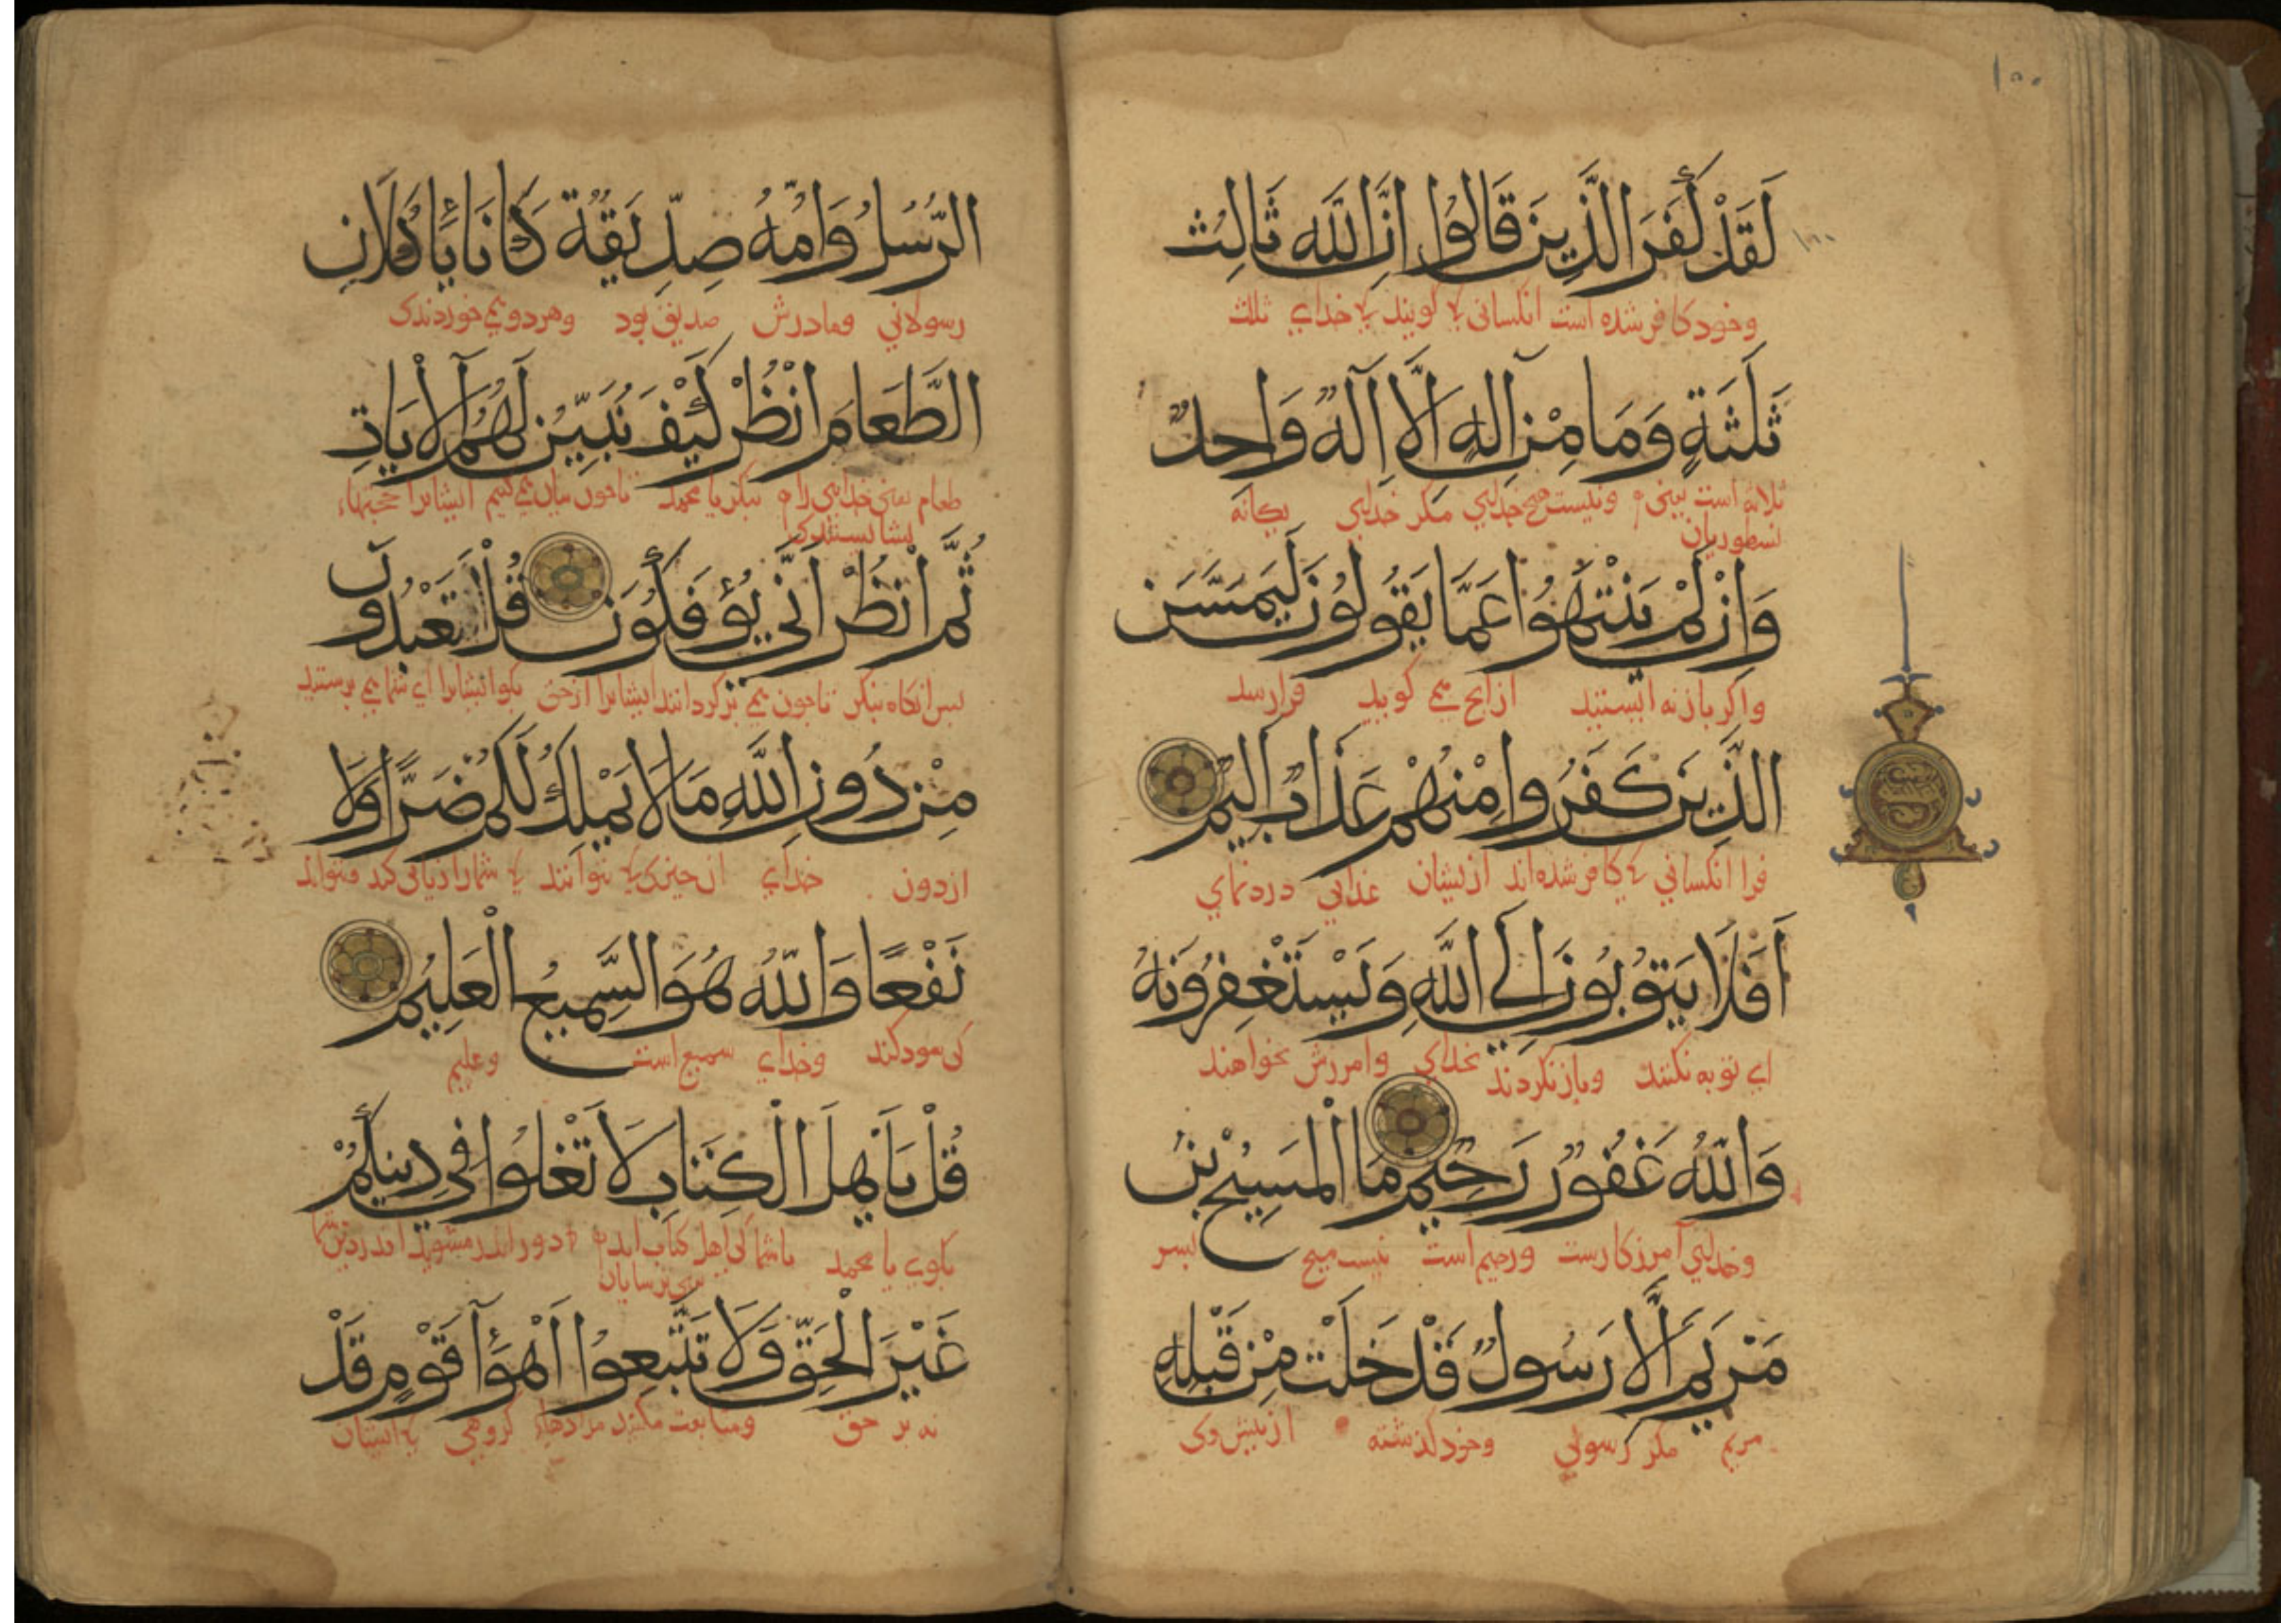 ١٥٥
لَقَدْ كَفَرَ الَّذِينَ قَالُوا اِنَّ اللَّهَ ثَالِثُ
وخود کافر شده است انکسانی کوبند خدای ثلث
ثَلَثَةٍ وَمَا مِنْ اِلَهٍ اِلَّا اِلَهٌ وَاحِدٌ
ثلاثه است یعنی ونیست هیچ خدایی مکر خدایی یکانه
نسطوریان
وَاِنْ لَمْ يَنْتَهُوا عَمَّا يَقُولُونَ لَيَمَسَّنَّ
واکر بازنه ایستیند ازانج می کویید فرارسد
الَّذِينَ كَفَرُوا مِنْهُمْ عَذَابٌ اَلِيمٌ
فرا انکسانی کافر شده اند ازیشان عذابی دردنمای
اَفَلَا يَتُوبُونَ اِلَى اللَّهِ وَيَسْتَغْفِرُونَهُ
ای توبه نکنند وبازنکردند بخدای وامرزش نخواهند
وَاللَّهُ غَفُورٌ رَحِيمٌ مَا الْمَسِيحُ بْنُ
وخدایی آمرزکارست ورحیم است نیست مسیح بسر
مَرْيَمَ اِلَّا رَسُولٌ قَدْ خَلَتْ مِنْ قَبْلِهِ
مریم مکر رسولی وخود کذشته ازبیش وی
الرُّسُلُ وَاُمُّهُ صِدِّيقَةٌ كَانَا يَاْكُلَانِ
رسولانی ومادرش صدیق بود وهردو می خوردندی
الطَّعَامَ اُنْظُرْ كَيْفَ نُبَيِّنُ لَهُمُ الْآيَاتِ
طعام یعنی خدایی را بنکر یا محمد تاجون بیان می کنیم ایشانرا حجتهاء
بشایستندی
ثُمَّ انْظُرْ اَنَّى يُؤْفَكُونَ قُلْ اَتَعْبُدُونَ
بس انکاه بنکر تاجون می بزکردانند ایشانرا ازحق بکو ایشانرا ای شما می برستید
مِنْ دُونِ اللَّهِ مَا لَا يَمْلِكُ لَكُمْ ضَرًّا وَلَا
ازدون خدای ان جیزی نتوانند شمارا زیانی کند ونتواند
نَفْعًا وَاللَّهُ هُوَ السَّمِيعُ الْعَلِيمُ
کی سود کند وخدای سمیع است وعلیم
قُلْ يَا اَهْلَ الْكِتَابِ لَا تَغْلُوا فِي دِينِكُمْ
بکوی یا محمد یا شما کی اهل کتاب اید دور اندر مشوید اندر دین شما
یعنی ترسایان
غَيْرَ الْحَقِّ وَلَا تَتَّبِعُوا اَهْوَآءَ قَوْمٍ قَدْ
نه بر حق ومتابعت مکنید مرادهاء کروهی ایشان